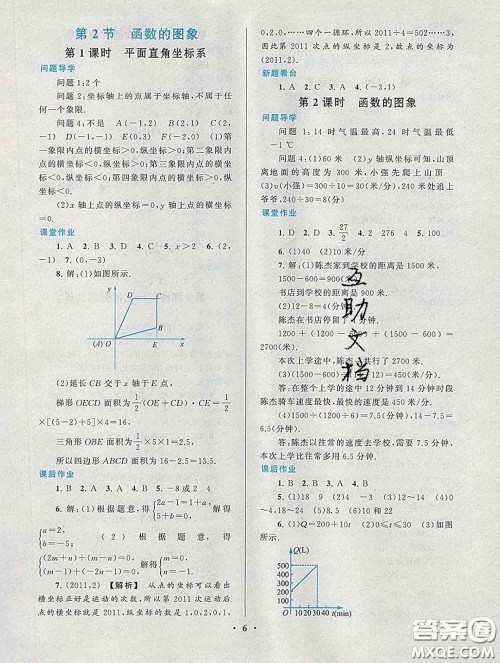 第 2 节　函数的图象
第 1 课时　平面直角坐标系
问题导学
问题 1:2 个
问题 2:坐标轴上的点属于坐标轴,不属于任何一个象限.
问题 4:不是,A(-1,2)　B(2,1)　C(2,-1)　D(-1,-1)　E(0,3)　F(-2,0)　(1)第一象限内点的横坐标>0,纵坐标>0;第二象限内点的横坐标<0,纵坐标>0;第三象限内点的横坐标<0,纵坐标<0;第四象限内点的横坐标>0,纵坐标<0.
(2)x 轴上点的纵坐标=0,y 轴上的点的横坐标=0.
课堂作业
1. A　2. B　3. D　4. C　5. x>2　6. (2,-1)　7. (0,-3)
8. 解:(1)如图所示.
y
D
C
B
(A) O
E
x
(2)延长 CB 交于 x 轴于 E 点.
梯形 OECD 面积为 1/2(CD+OE)·CE=1/2×[(5-2)+5]×4=16.
三角形 OBE 面积为 1/2×5×1=2.5.
所以四边形 ABCD 面积为 16-2.5=13.5.
课后作业
1. B　2. A　3. B　4. B　5. -8 或 2　4
6. 解:(1)根据题意,得{2a-1=1+a, 5+b=0. 解得
{a=2, b=-5. (2)根据题意,得
{(2m+n)+(m-n)=0, (m-n)+(-1)=0. 解得{m=-1, n=-2.
7. (2011,2)　【解析】　从点的坐标可以看出横坐标正好是运动的次数,所以第 2011 次运动后点的横坐标就是 2011,纵坐标的数依次为 1,0,2,0,1,
0,2,0,……四个一循环,所以 2011÷4=502……3,因此第 2011 次点的纵坐标为 2,故点的坐标为(2011,2).
新题看台
1. A　2. C　3. A　4. (-3,1)
第 2 课时　函数的图象
问题导学
问题 1:14 时气温最高,24 时气温最低　-1℃
问题 3:(1)60 米　(2)y 轴纵坐标可知,山顶离地面的高度为 300 米,小强先爬上山顶　(3)v(小强)=300÷10=30(米/分),240 米处追上爷爷,240÷30=8(分)
课堂作业
1. A　2. D　3. 27/2　4. 2　276　4　5. 100
6. (1)40　(2)10
7. 解:(1)陈杰家到学校的距离是 1500 米,
书店到学校的距离是 900 米.
陈杰在书店停留了 4 分钟.
1200+(1200-600)+(1500-600)=2700(米).
本次上学途中,陈杰一共行了 2700 米.
(3)(1500-600)÷(14-12)=450(米/分).
答:在整个上学的途中 12 分钟到 14 分钟时段陈杰骑车速度最快,最快的速度是 450 米/分.
(4)1500÷(1200÷6)=7.5(分),14-7.5=6.5(分).
答:陈杰以往常的速度去学校,需要 7.5 分钟.本次上学比往常多用 6.5 分钟.
课后作业
1. B　2. D　3. B　4. A
5. (1)18　9　(2)4　-3　(3)12～14　24　(4)-2～0　12
6. (1)Q=200+10t　(2)0≤t≤30　(3)如图所示.
Q(L)
500
400
300
200
100
O
10 20 30 40 t(min)
互助文档
6
答案圈
MXQE.COM